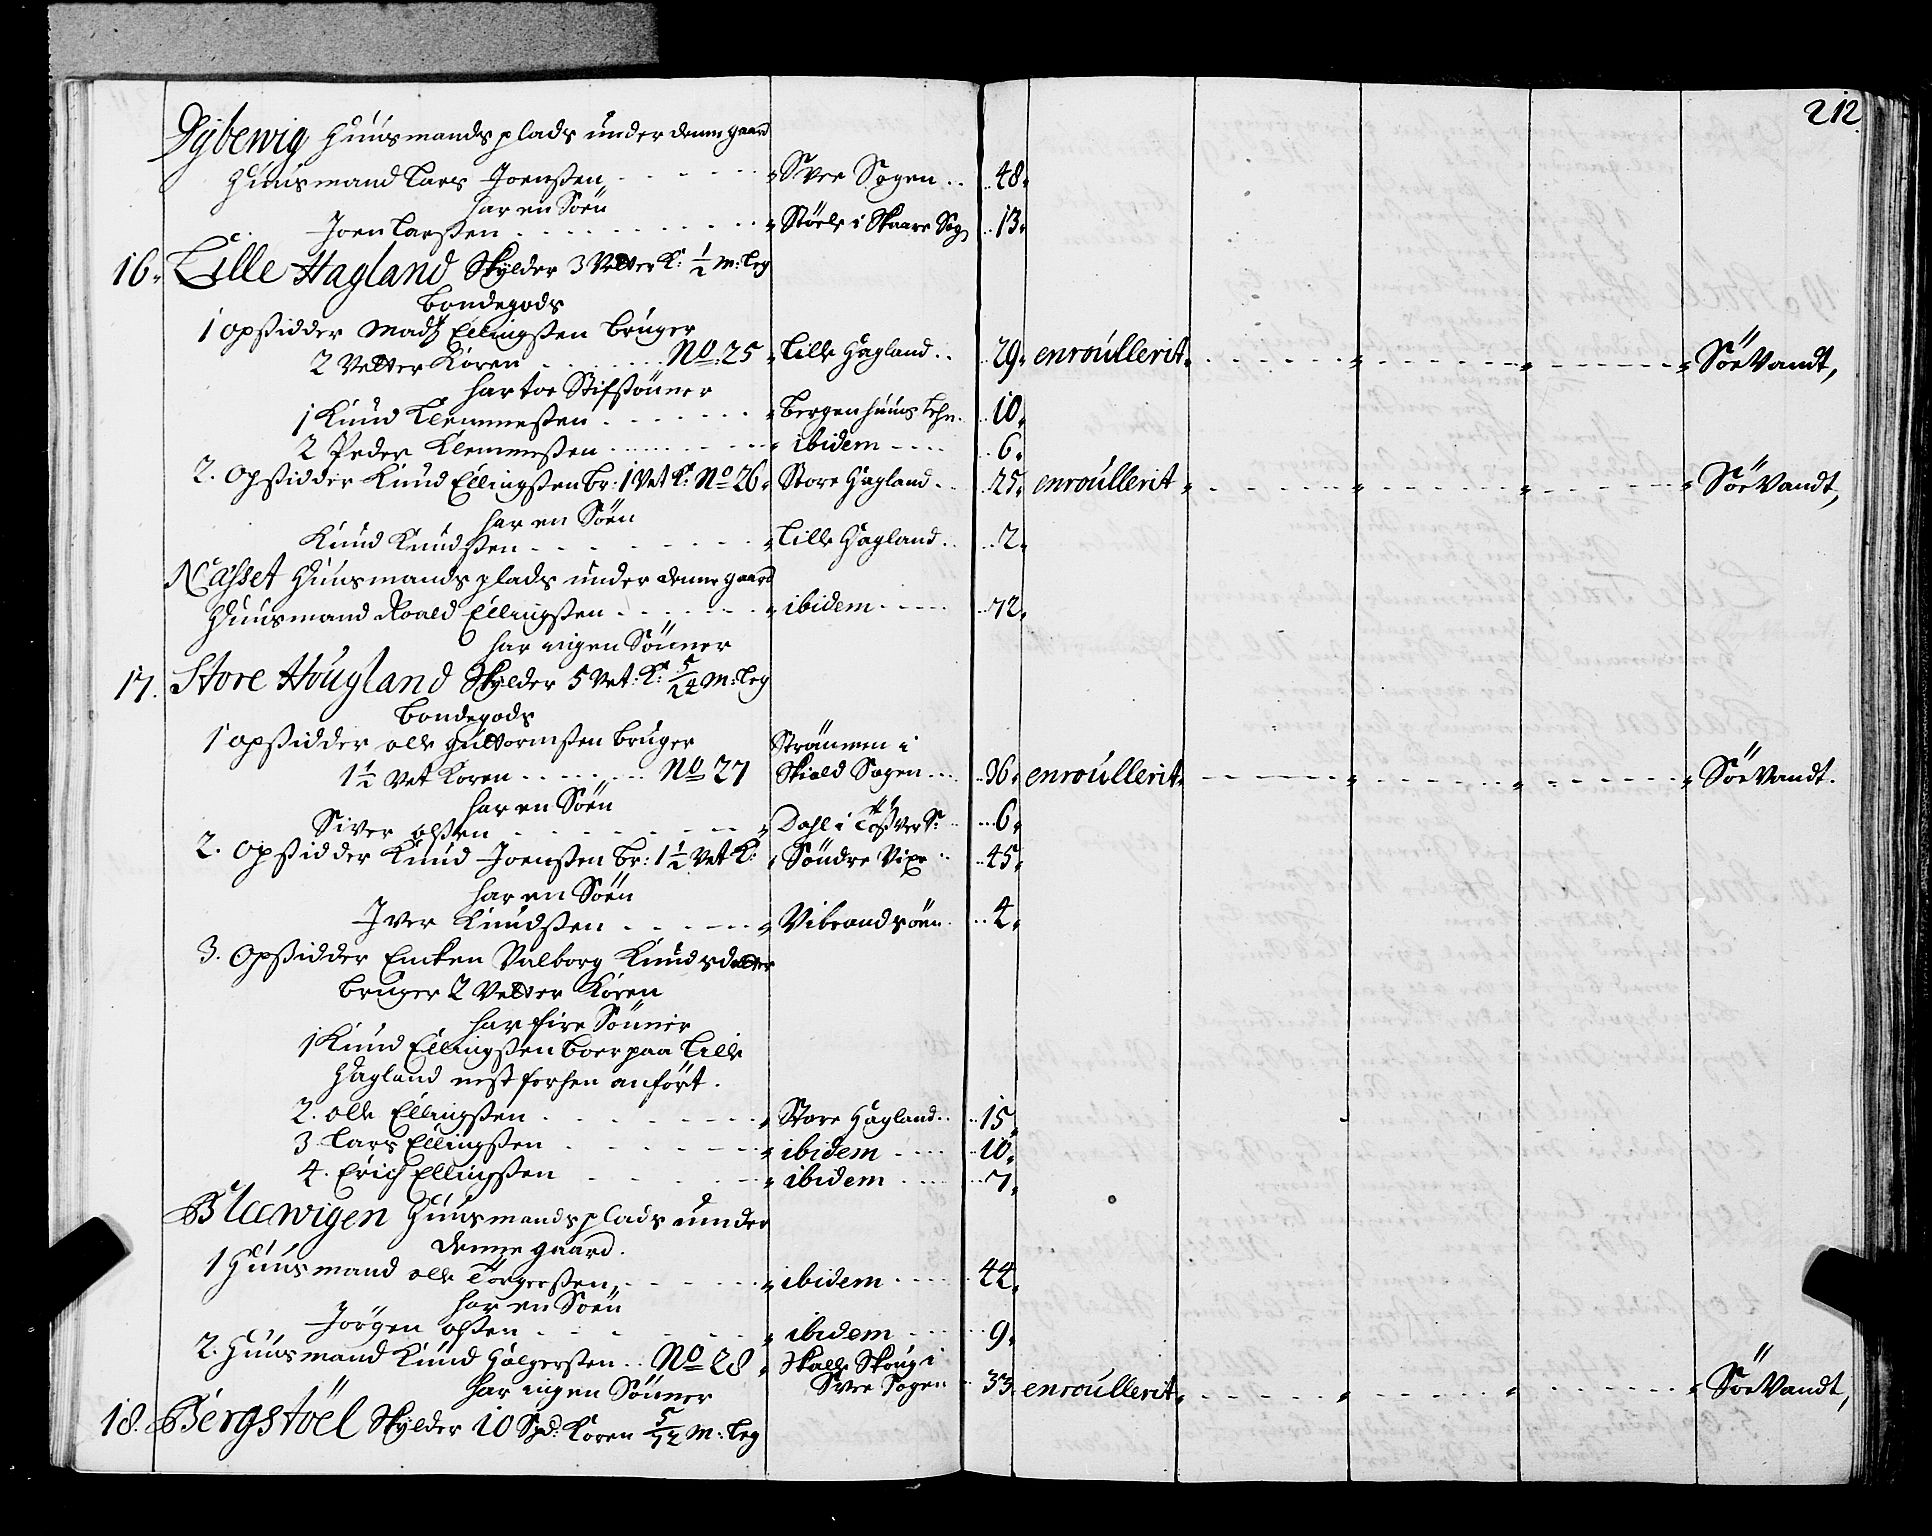 212
Dybewig Huusmands plads under denne gaard
Huusmand Lars Joenßen - - - - - Svee Sogen .. 48.
har en Soën
Joen Larßen - - - - - - - - Stöele i Skaare Sog .. 13.
16. Lille Hagland Skylder 3 Vetter K: 1/2 M: Leg
Bondegods
1 opsidder Mads Ellingßen bruger
2 Vetter Koren - - - No: 25 Lille Hagland .. 29. enroullerit - - - - Söe Vandt,
har toe Stifsönner
1 Knud Clemmeßen - - - - - Bergenhuus Lehn .. 10.
2 Peder Clemmeßen - - - - - ibidem - - - - .. 6.
2. Opsidder Knud Ellingßen br: 1 Vet K: No 26. Store Hagland .. 25. enroullerit - - - - Söe Vandt,
har en Söen
Knud Knudßen - - - - - - Lille Hagland .. 2.
Nasset Huusmands plads under denne gaard
Huusmand Roald Ellingßen - - - - - ibidem - - - - .. 72.
har ingen Sönner
17. Store Hougland Skylder 5 Vet: K: 5/24 M: Leg
Bondegods
1 opsidder olle Guttormßen bruger Strömmen i
1 1/2 Vet Koren - - - - No 27 Skiold Sogen .. 36. enroullerit - - - - Söe Vandt.
har en Soën
Siver olßen - - - - - - Dahl i S: .. 6.
2. Opsidder Knud Joenßen br: 1 1/2 Vet K: Söndre Vixe .. 45.
har en Söen
Iver Knudßen - - - - - Vibrandsöen .. 4.
3. Opsidder Encken Valborg Knudsdatter
bruger 2 Vetter Koren
har fire Sönner
1 Knud Ellingßen boer paa Lille
Hagland nest forhen anfört.
2. olle Ellingßen - - - - - Store Hagland .. 15.
3 Lars Ellingßen - - - - - ibidem - - - - .. 10.
4. Erich Ellingßen - - - - - ibidem - - - - .. 7.
Bleewigen Huusmands plads under
denne gaard.
1 Huusmand olle Torgerßen - - - - - ibidem - - - - 44.
har en Soën
Jörgen olßen - - - - - - ibidem - - - - 9.
2. Huusmand Knud Holgerßen .. No 28 Skalle Skoug i
Svee Sogen .. 33. enroullerit - - - - Söe Vandt,
har ingen Sönner
18. Bergstöel Skylder 10 Spd: Koren 5/12 M: Leg